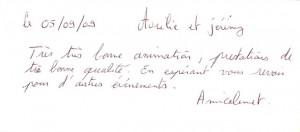 le 05/09/09 Aurélie et jérémy
Très très bonne animation, prestations de
très bonne qualité. En espérant vous revoir
pour d'autres événements.
Amicalement.